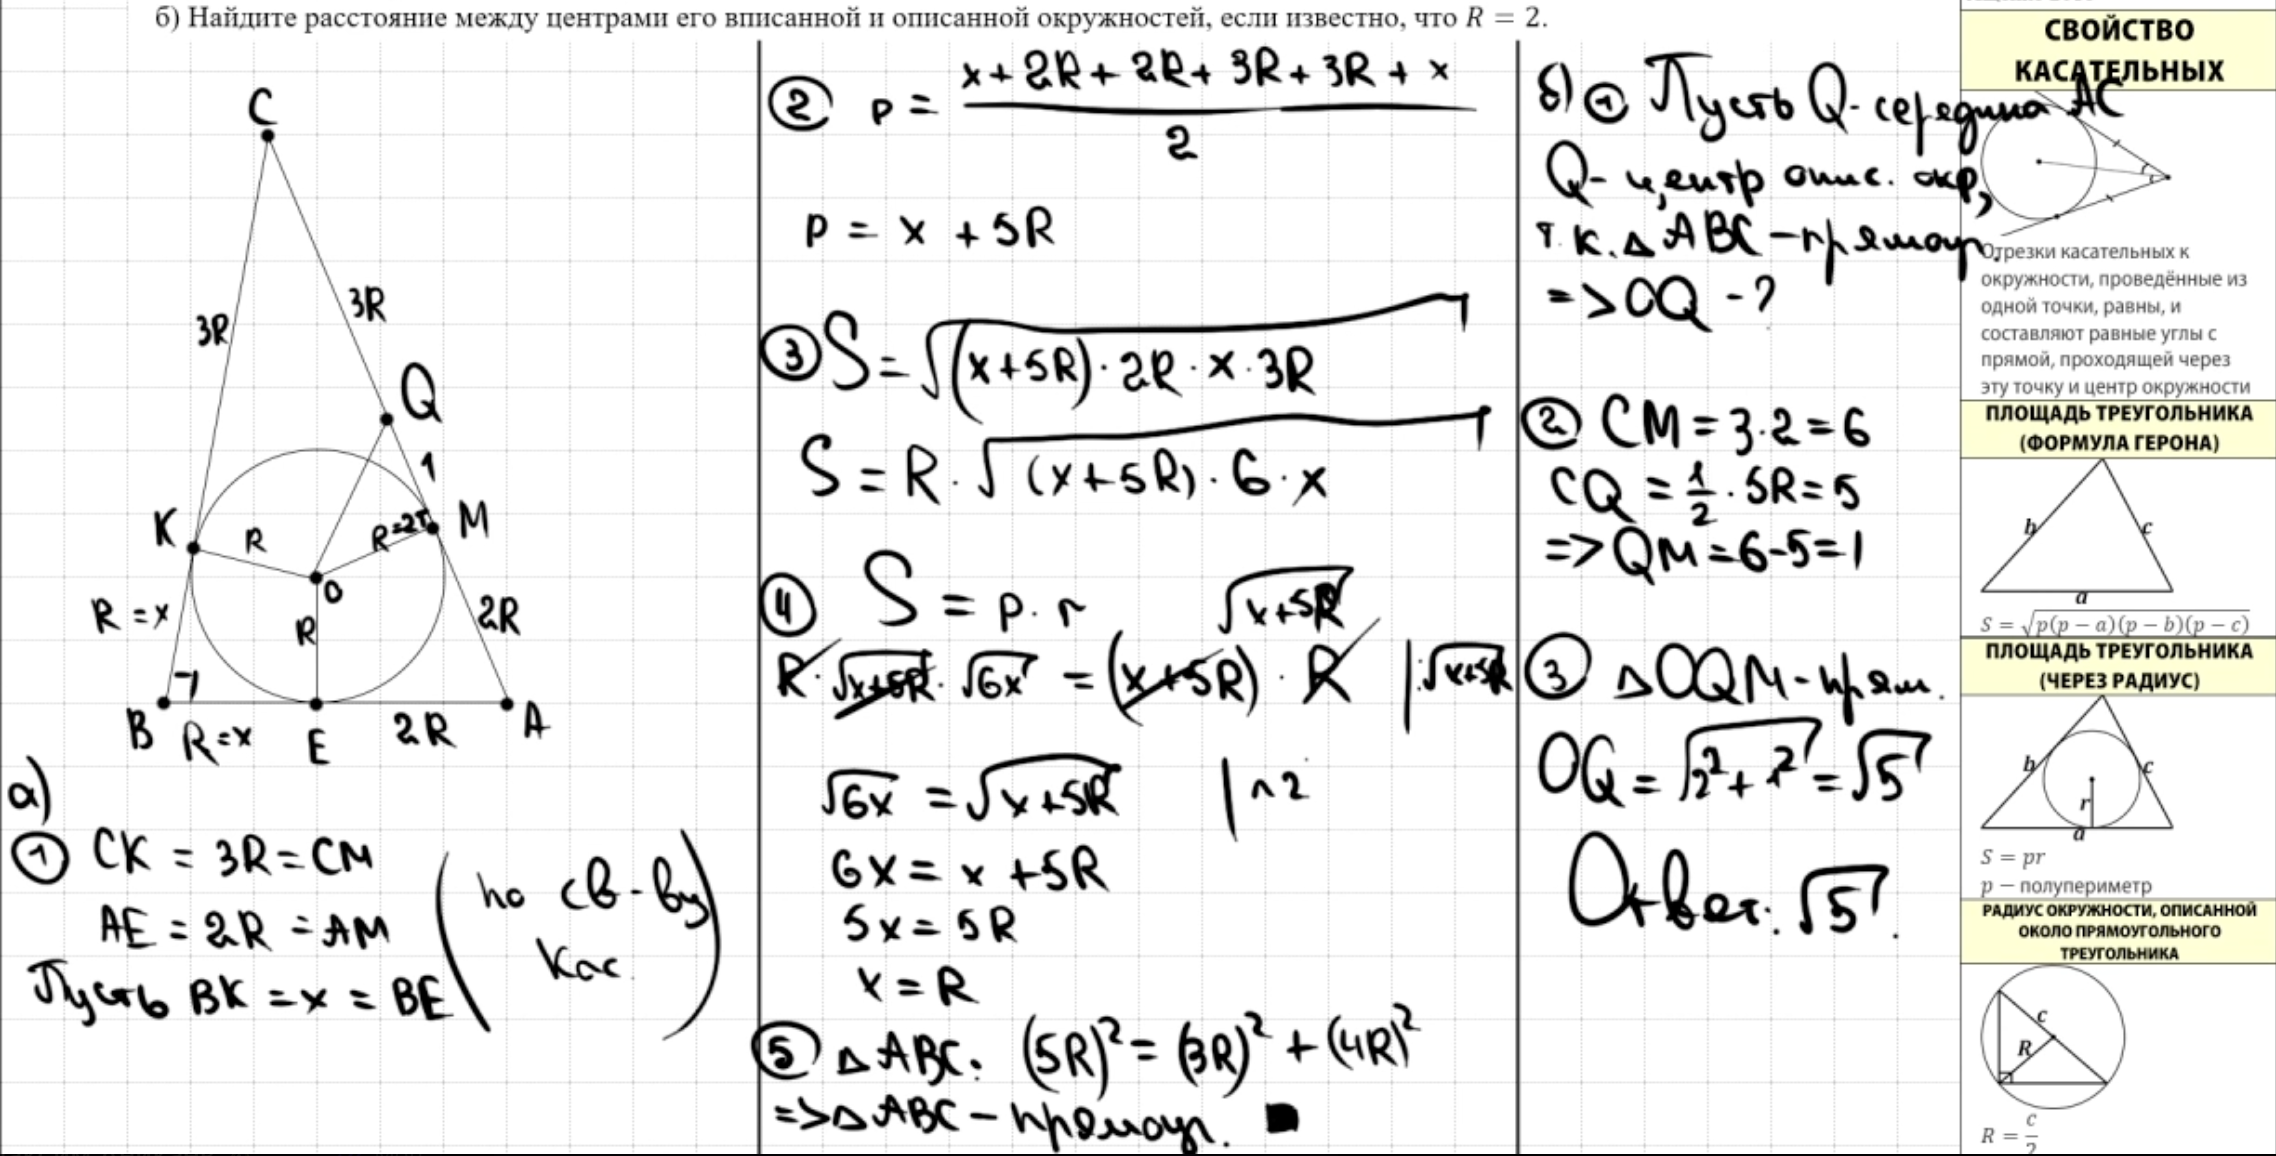 б) Найдите расстояние между центрами его вписанной и описанной окружностей, если известно, что R = 2.
C
3R
3R
Q
1
K
R
R=2
M
O
R = x
R
2R
B
R=x
E
2R
A
а)
① CK = 3R = CM
AE = 2R = AM
Пусть BK = x = BE
(по св-ву
кас.)
② p = (x + 2R + 2R + 3R + 3R + x) / 2
p = x + 5R
③ S = √((x+5R) · 2R · x · 3R)
S = R · √((x+5R) · 6 · x)
④ S = p · r
√(x+5R)
R · √(x+5R) · √(6x) = (x+5R) · R | : √(x+5R)
√(6x) = √(x+5R) | ^2
6x = x + 5R
5x = 5R
x = R
⑤ △ABC: (5R)² = (3R)² + (4R)²
=> △ABC – прямоуг. ■
б) ① Пусть Q - середина AC
Q - центр опис. окр,
т.к. △ABC – прямоуг.
=> OQ - ?
② CM = 3·2 = 6
CQ = 1/2 · 5R = 5
=> QM = 6-5 = 1
③ △OQM - прям.
OQ = √(2² + 1²) = √5
Ответ: √5.
СВОЙСТВО
КАСАТЕЛЬНЫХ
Отрезки касательных к
окружности, проведённые из
одной точки, равны, и
составляют равные углы с
прямой, проходящей через
эту точку и центр окружности
ПЛОЩАДЬ ТРЕУГОЛЬНИКА
(ФОРМУЛА ГЕРОНА)
b
c
a
S = √(p(p − a)(p − b)(p − c))
ПЛОЩАДЬ ТРЕУГОЛЬНИКА
(ЧЕРЕЗ РАДИУС)
b
c
r
a
S = pr
p − полупериметр
РАДИУС ОКРУЖНОСТИ, ОПИСАННОЙ
ОКОЛО ПРЯМОУГОЛЬНОГО
ТРЕУГОЛЬНИКА
c
R
R = c/2